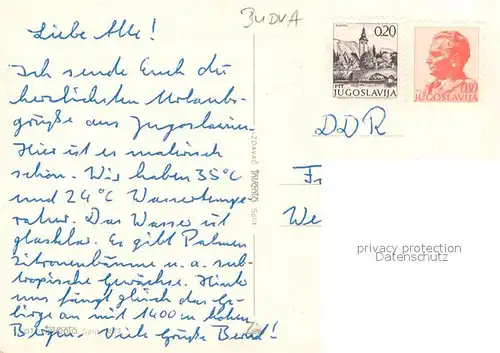 Liebe Alle!
Ich sende Euch die
herzlichsten Urlaubs-
grüße aus Jugoslawien.
Hier ist es malerisch
schön. Wir haben 35°C
und 24°C Wassertempe-
ratur. Das Wasser ist
glasklar. Es gibt Palmen
zitronenbäume u. a. sub-
tropische Gewächse. Hinter
uns fängt gleich das Ge-
birge an mit 1400 m hohen
Bergen. Viele Grüße Bernd!
BUDVA
0,20
PTT
JUGOSLAVIJA
0,80
JUGOSLAVIJA
DDR
Fr
We
IZDAVAČ
Split
privacy protection
Datenschutz